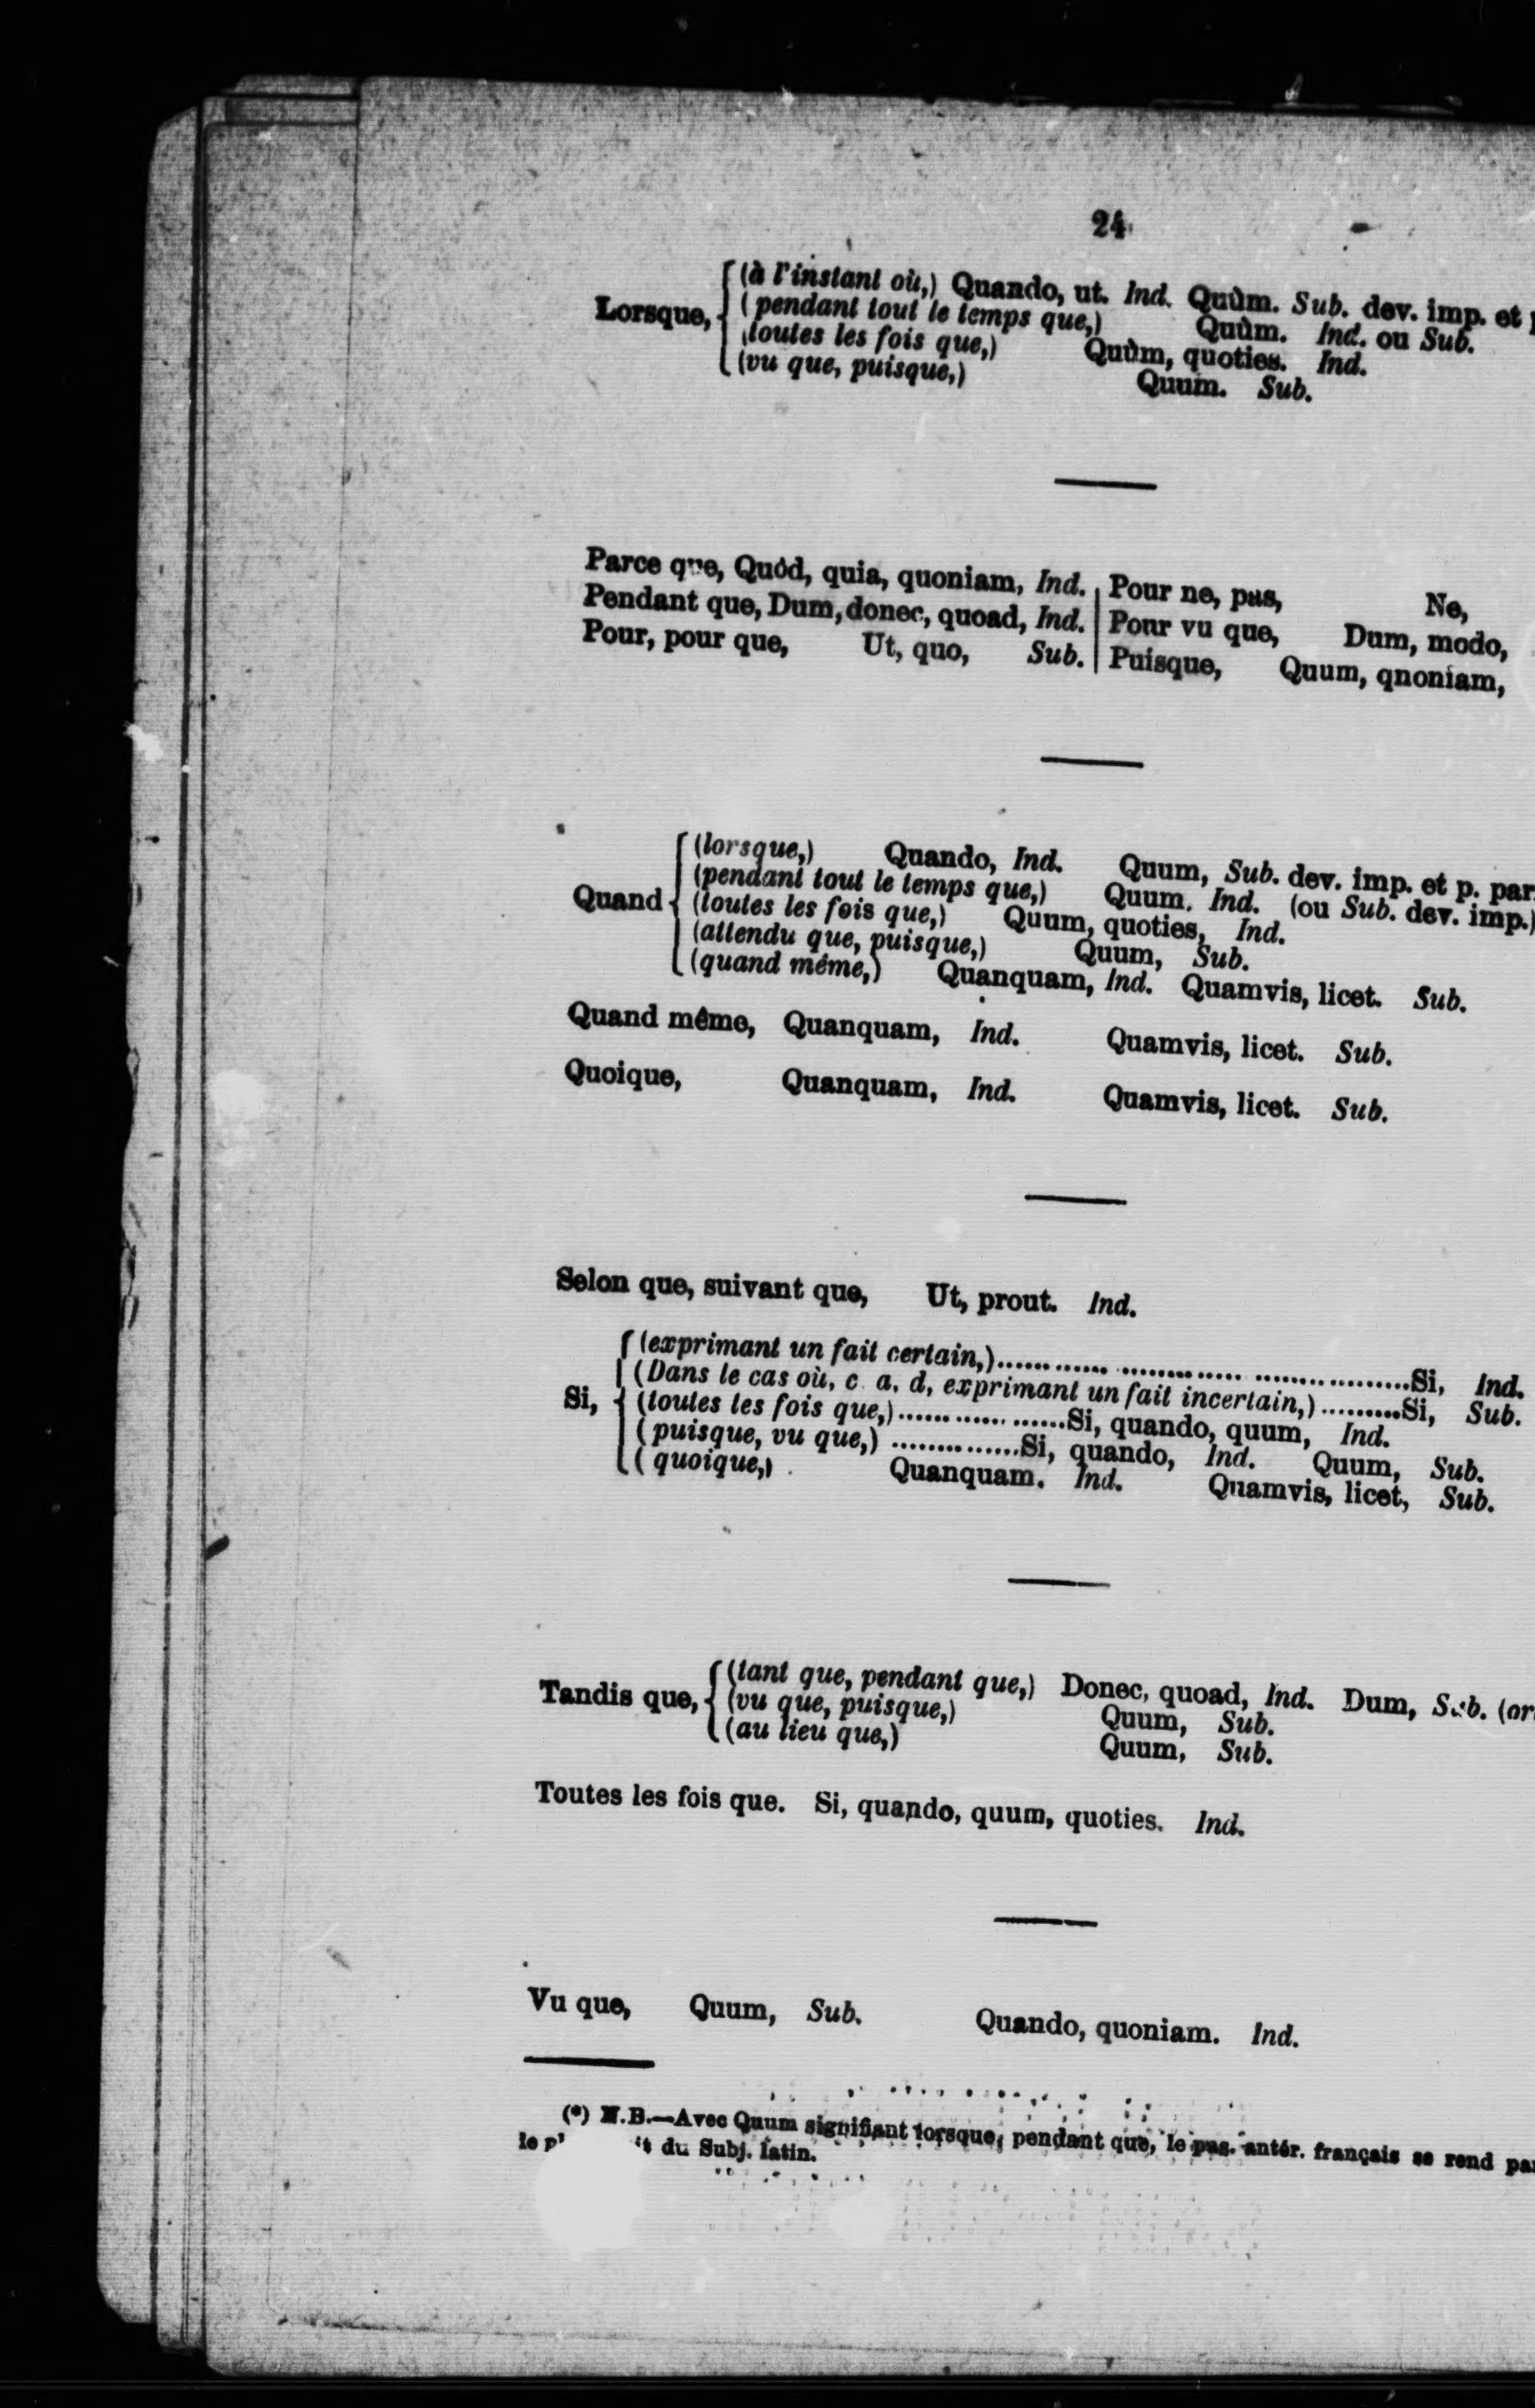 24
Lorsque, (à l'instant où,) Quando, ut. Ind. Quùm. Sub. dev. imp. et
(pendant tout le temps que,) Quùm. Ind. ou Sub.
(toutes les fois que,) Quùm, quoties. Ind.
(vu que, puisque,) Quum. Sub.
Parce que, Quòd, quia, quoniam, Ind.
Pendant que, Dum, donec, quoad, Ind.
Pour, pour que, Ut, quo, Sub.
Pour ne, pas, Ne,
Pour vu que, Dum, modo,
Puisque, Quum, qnoniam,
Quand (lorsque,) Quando, Ind. Quum, Sub. dev. imp. et p. par
(pendant tout le temps que,) Quum. Ind. (ou Sub. dev. imp.)
(toutes les fois que,) Quum, quoties, Ind.
(attendu que, puisque,) Quum, Sub.
(quand même,) Quanquam, Ind. Quamvis, licet. Sub.
Quand même, Quanquam, Ind. Quamvis, licet. Sub.
Quoique, Quanquam, Ind. Quamvis, licet. Sub.
Selon que, suivant que, Ut, prout. Ind.
Si, (exprimant un fait certain,)........................Si, Ind.
(Dans le cas où, c. a. d, exprimant un fait incertain,).........Si, Sub.
(toutes les fois que,)..................Si, quando, quum, Ind.
(puisque, vu que,) ..............Si, quando, Ind. Quum, Sub.
(quoique,) Quanquam. Ind. Quamvis, licet, Sub.
Tandis que, (tant que, pendant que,) Donec, quoad, Ind. Dum, Sub. (or
(vu que, puisque,) Quum, Sub.
(au lieu que,) Quum, Sub.
Toutes les fois que. Si, quando, quum, quoties. Ind.
Vu que, Quum, Sub. Quando, quoniam. Ind.
(*) N.B.—Avec Quum signifiant lorsque, pendant que, le pas. antér. français se rend par
le du Subj. latin.